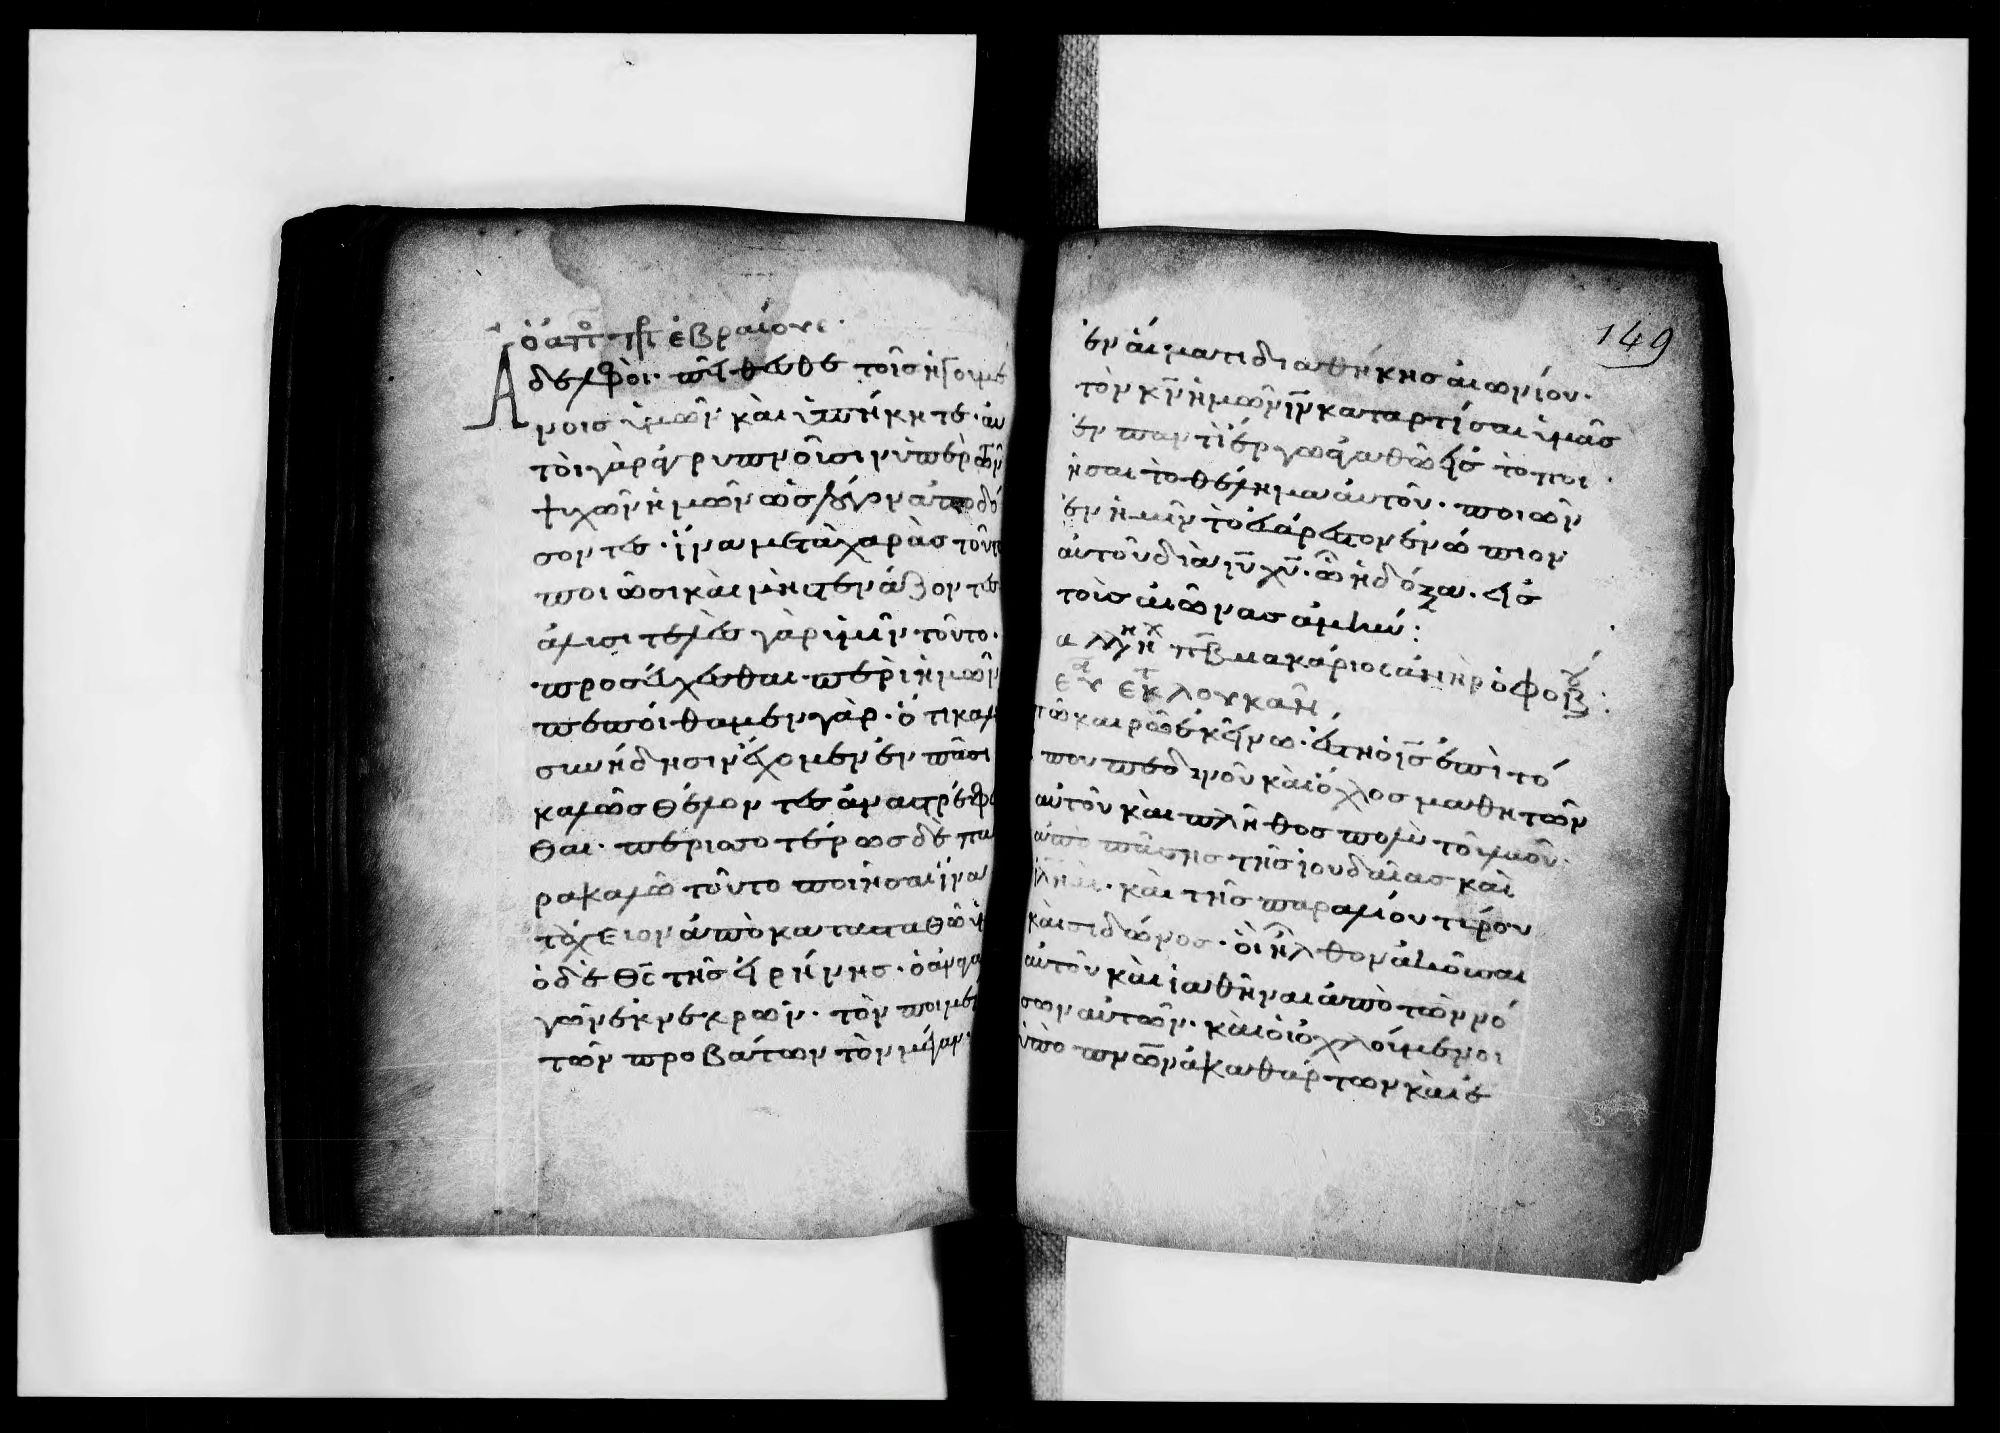 ὁ ἀπο πρ ἑβραίους·
Ἀδελφοὶ· πείθεσθε τοῖς ἡγουμέ
νοις ὑμῶν καὶ ὑπείκητε· αὐ
τοὶ γὰρ ἀγρυπνοῦσιν ὑπὲρ τῶν
ψυχῶν ἡμῶν ὡς λόγον ἀποδώ
σοντες· ἵνα μετὰ χαρᾶς τοῦτο
ποιῶσι καὶ μὴ στενάζοντες
ἀλυσιτελὲς γὰρ ὑμῖν τοῦτο·
προσεύχεσθαι περὶ ἡμῶν
πεποίθαμεν γὰρ· ὅτι καλ
συνήδησιν ἔχομεν ἐν πᾶσι
καλῶς θέλοντες ἀναστρέφε
σθαι· περισσοτέρως δὲ πα
ρακαλῶ τοῦτο ποιῆσαι ἵνα
τάχειον ἀποκατασταθῶ ὑ
ὁ δὲ θς τῆς εἰρήνης· ὁ ἀναγα
γὼν ἐκ νεκρῶν· τὸν ποιμέν
τῶν προβάτων τὸν μέγαν·
149
ἐν αἵματι διαθήκης αἰωνίου·
τὸν κν ἡμῶν ιν καταρτίσαι ὑμᾶς
ἐν παντὶ ἔργω ἀγαθῶ εἰς τὸ ποι
ῆσαι τὸ θέλημα αὐτοῦ· ποιῶν
ἐν ἡμῖν τὸ εὐάρεστον ἐνώπιον
αὐτοῦ διὰ ιυ χυ· ὧ ἡ δόξα· εἰς
τοὺς αἰῶνας ἀμήν:
αλλη ηχ πβ μακάριος ἀνὴρ ὁ φοβ:
ευα εκ τ λουκᾶν
τῶ καιρῶ ἐκείνω· ἔστη ὁ ις ἐπὶ τό
που πεδινοῦ καὶ ὄχλος μαθητῶν
αὐτοῦ καὶ πλῆθος πολὺ τοῦ λαοῦ·
ἀπὸ πάσης τῆς ἰουδαίας καὶ
ιλημ· καὶ τῆς παραλίου τύρου
καὶ σιδῶνος· οἳ ἦλθον ἀκοῦσαι
αὐτοῦ καὶ ἰαθῆναι ἀπὸ τῶν νό
σων αὐτῶν· καὶ οἱ ὀχλούμενοι
ὑπὸ πνων ἀκαθάρτων καὶ ἐ